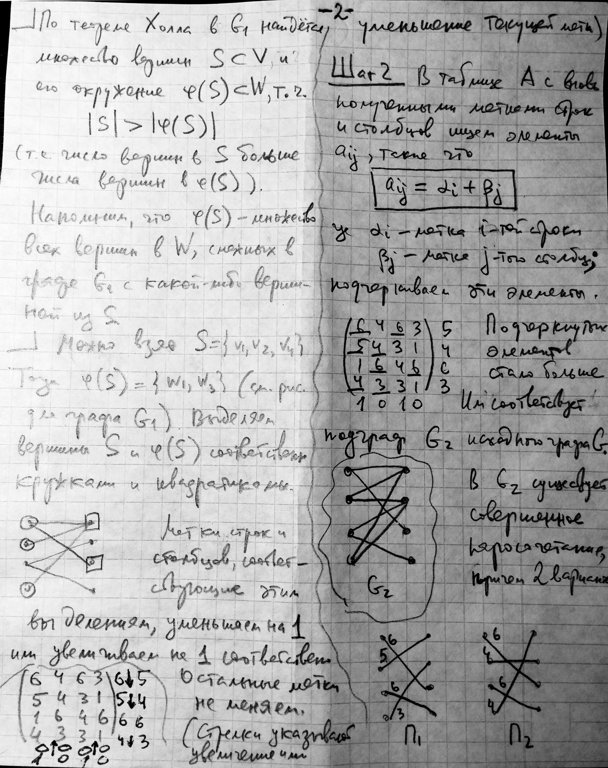 -2-
По теореме Холла в G₁ найдётся
множество вершин S⊂V, и
его окружение φ(S)⊂W, т.ч.
|S| > |φ(S)|
(т.е. число вершин в S больше
числа вершин в φ(S)).
Напомним, что φ(S) – множество
всех вершин в W, смежных в
графе G₁ с какой-либо верши-
ной из S
Можно взять S={v₁, v₂, v₄}
Тогда φ(S) = {w₁, w₃} (см. рис.
для графа G₁). Выделяем
вершины S и φ(S) соответственно
кружками и квадратиками.
Метки строк и
столбцов, соответ-
ствующие этим
выделениям, уменьшаем на 1
или увеличиваем на 1 соответственно
Остальные метки
не меняем.
(Стрелки указывают
увеличение или
6 4 6 3 6↓5
5 4 3 1 5↓4
1 6 4 6 6 6
4 3 3 1 4↓3
0↑ 0 0↑ 0
1 0 1 0
уменьшение текущей метки)
Шаг 2 В таблице A с вновь
полученными метками строк
и столбцов ищем элементы
aij, такие что
aij = αi + βj
где αi – метка i-той строки
βj – метка j-того столбца;
подчеркиваем эти элементы.
6 4 6 3 5
5 4 3 1 4
1 6 4 6 6
4 3 3 1 3
1 0 1 0
Подчеркнутых
элементов
стало больше
Им соответствует
подграф G₂ исходного графа G.
В G₂ существует
совершенное
паросочетание,
причем 2 варианта
G₂
6
5
6
3
П₁
6
4
6
4
П₂